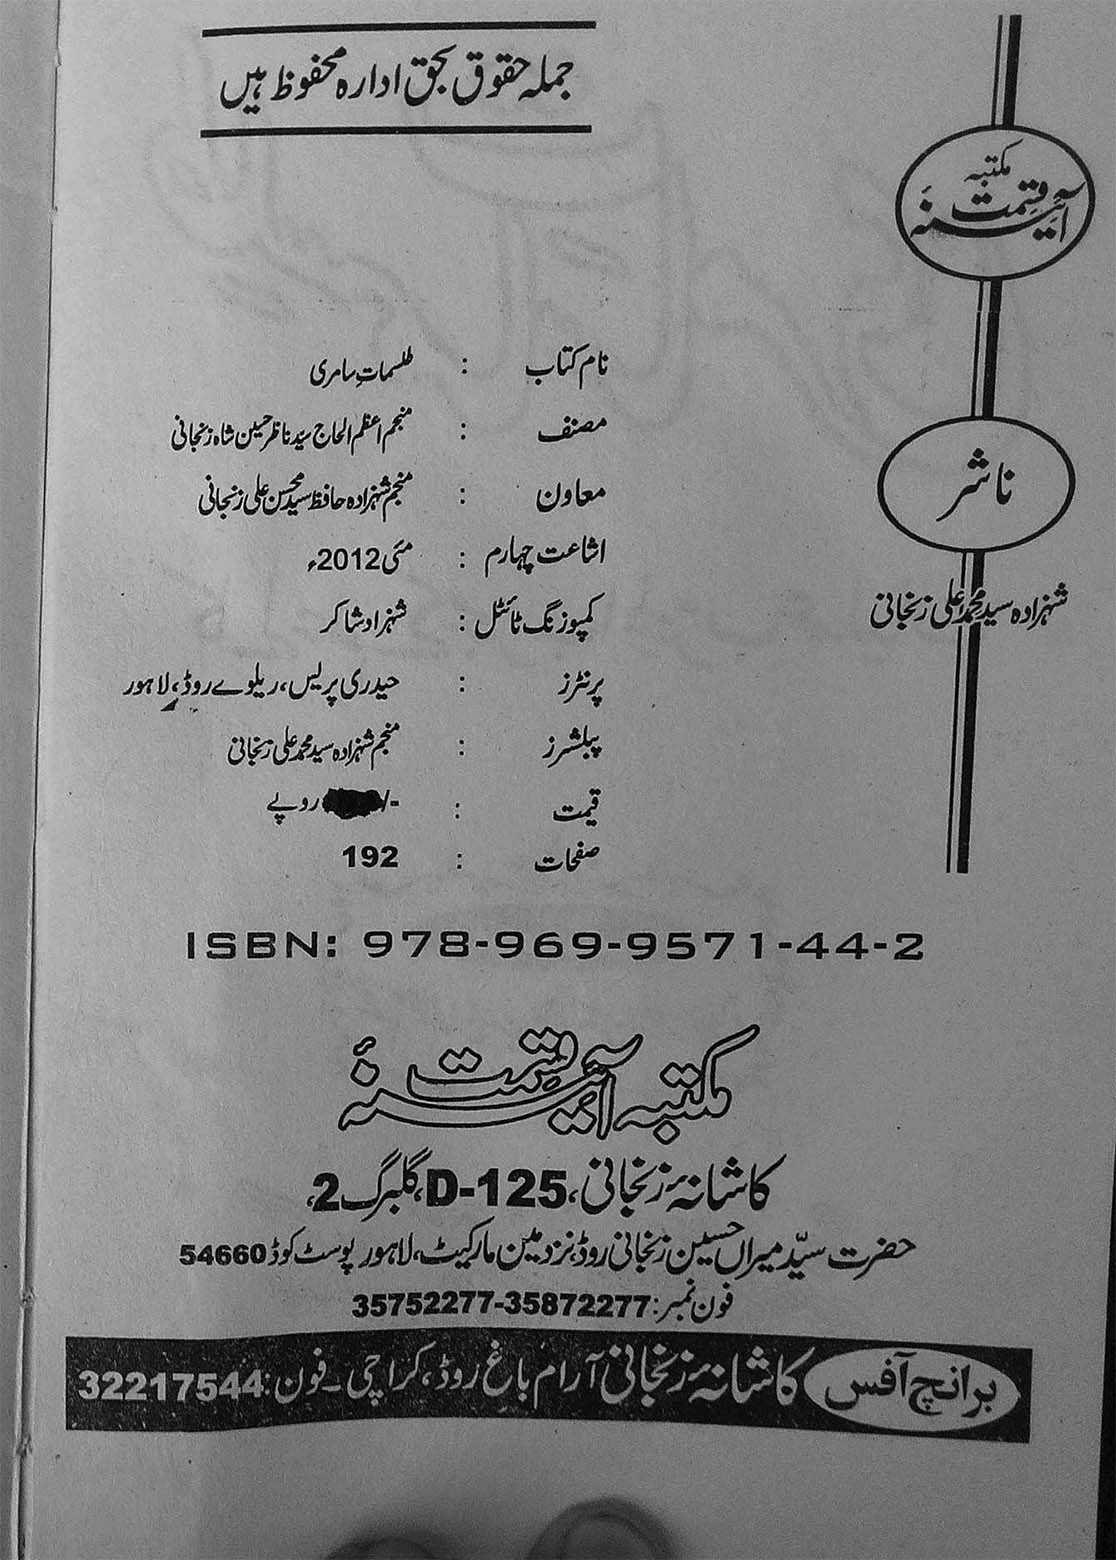 جملہ حقوق بحق ادارہ محفوظ ہیں
مکتبہ
آئینہ قسمت
ناشر
شہزادہ سید محمد علی زنجانی
نام کتاب : طلسماتِ سامری
مصنف : منجم اعظم الحاج سیّد ناظر حسین شاہ زنجانی
معاون : منجم شہزادہ حافظ سید محسن علی زنجانی
اشاعت چہارم : مئی 2012ء
کمپوزنگ ٹائٹل : شہزاد شاکر
پرنٹرز : حیدری پریس، ریلوے روڈ، لاہور
پبلشرز : منجم شہزادہ سید محمد علی زنجانی
قیمت : -/ روپے
صفحات : 192
ISBN: 978-969-9571-44-2
مکتبہ آئینہ قسمت
کاشانۂ زنجانی، 125-D، گلبرگ 2،
حضرت سیّد میراں حسین زنجانی روڈ، نزد مین مارکیٹ، لاہور پوسٹ کوڈ 54660
فون نمبر: 35752277-35872277
برانچ آفس کاشانۂ زنجانی آرام باغ روڈ، کراچی۔ فون: 32217544